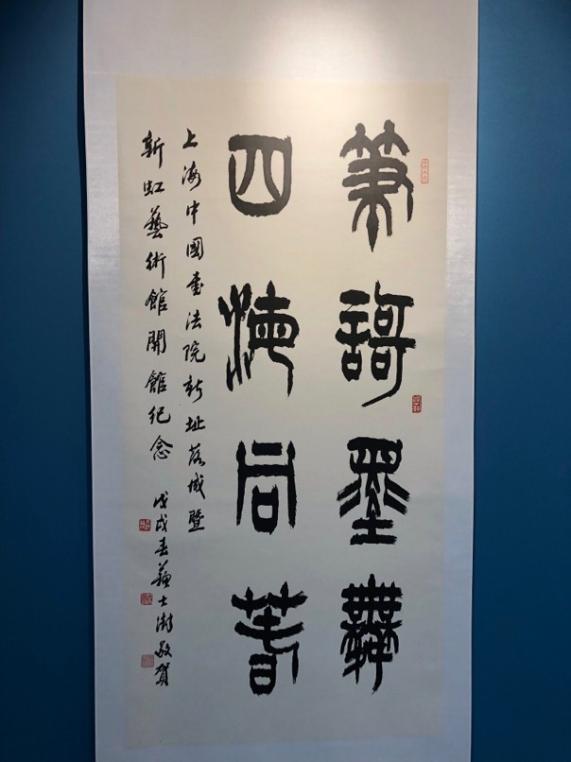 筆謌墨舞
四海同萅
上海中國書法院新址落成暨
新虹藝術館開館紀念 戊戌春蘇士澍敬賀